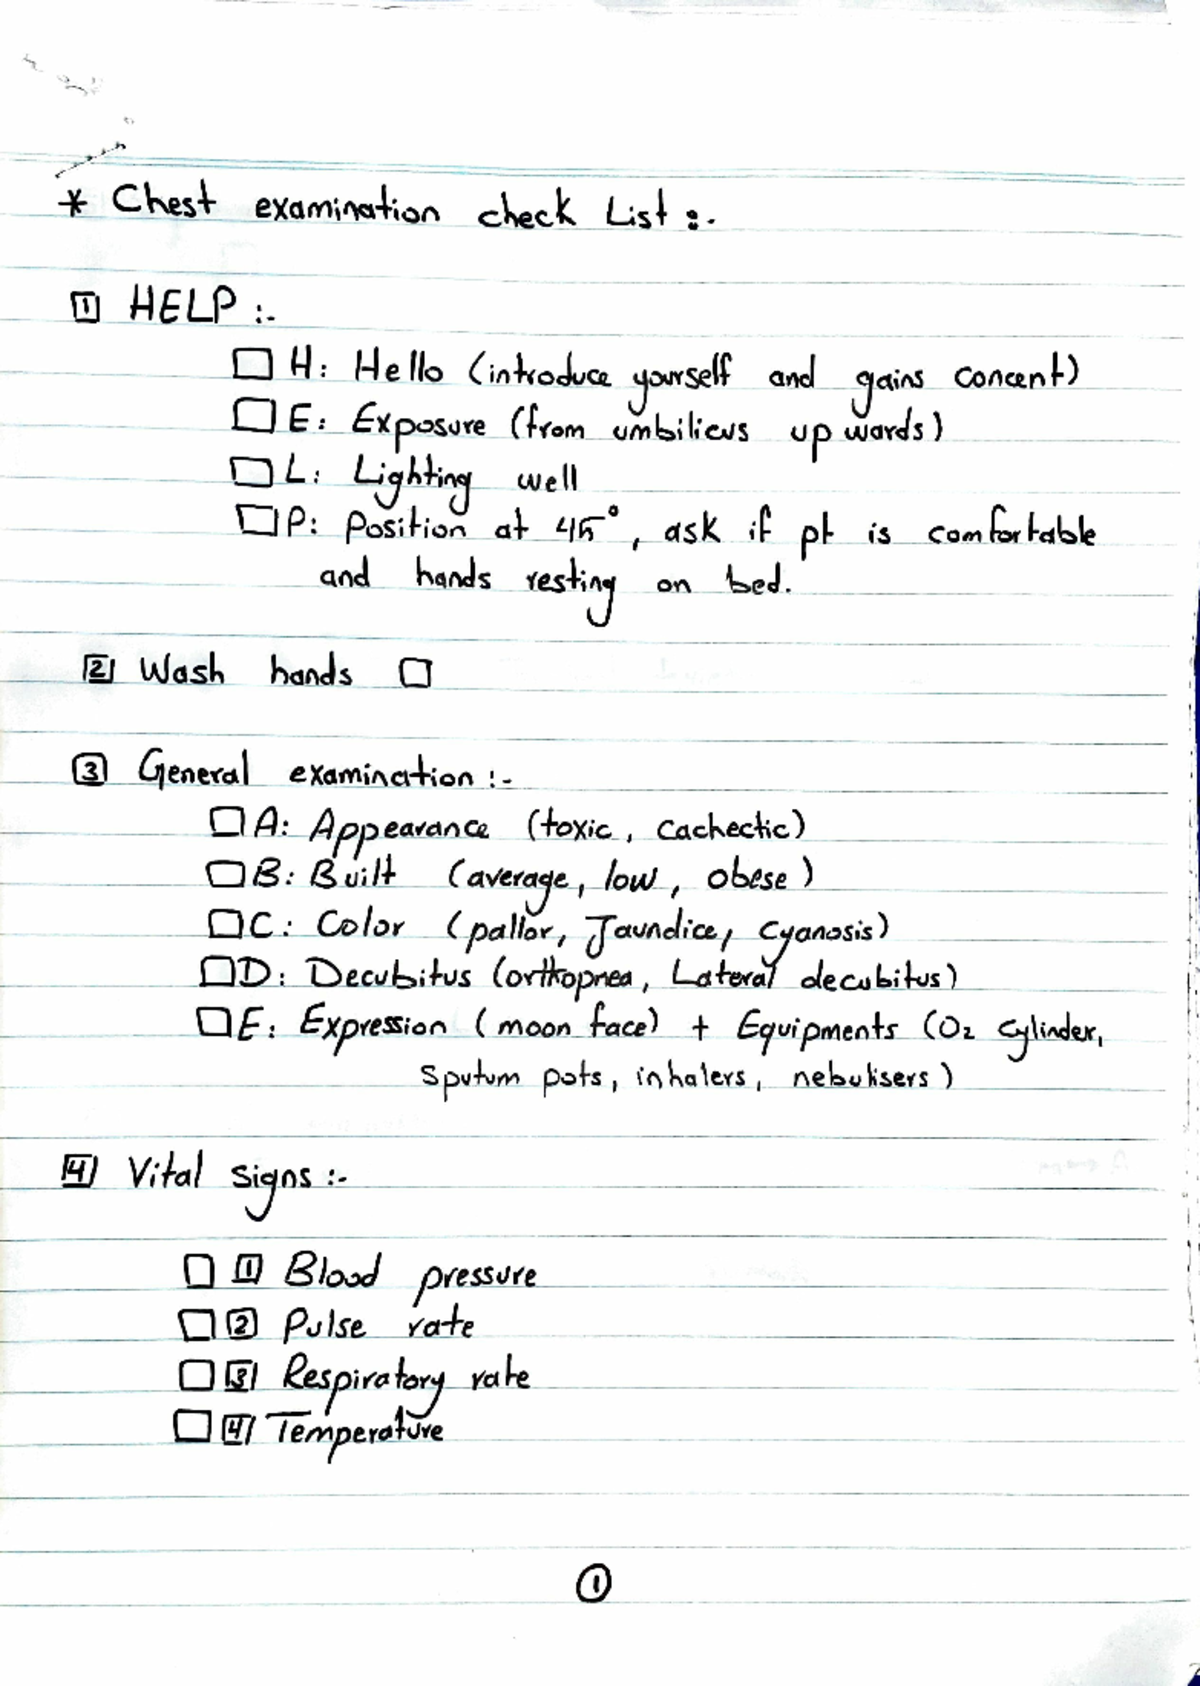 * Chest examination check List :-
1 HELP :-
□ H: Hello (introduce yourself and gains concent)
□ E: Exposure (from umbilicus up wards)
□ L: Lighting well
□ P: Position at 45°, ask if pt is comfortable
and hands resting on bed.
2 Wash hands □
3 General examination :-
□ A: Appearance (toxic, cachectic)
□ B: Built (average, low, obese)
□ C: Color (pallor, Jaundice, cyanosis)
□ D: Decubitus (orthopnea, Lateral decubitus)
□ E: Expression (moon face) + Equipments (O2 cylinder,
sputum pots, inhalers, nebulisers)
4 Vital signs :-
□ 1 Blood pressure
□ 2 Pulse rate
□ 3 Respiratory rate
□ 4 Temperature
1